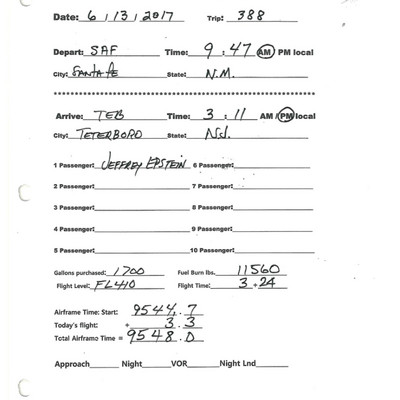 Date: 6/3/2017 Trip: 388
Depart: SAF Time: 9:47 AM PM local
City: SANTA FE State: N.M.
Arrive: TEB Time: 3:11 AM/PM local
City: TETERBORO State: N.J.
1 Passenger: JEFFREY EPSTEIN 6 Passenger:
2 Passenger: 7 Passenger:
3 Passenger: 8 Passenger:
4 Passenger: 9 Passenger:
5 Passenger: 10 Passenger:
Gallons purchased: 1700 Fuel Burn lbs. 11560
Flight Level: FL410 Flight Time: 3+24
Airframe Time: Start: 9544.7
Today's flight: + 3.3
Total Airframe Time = 9548.0
Approach Night VOR Night Lnd